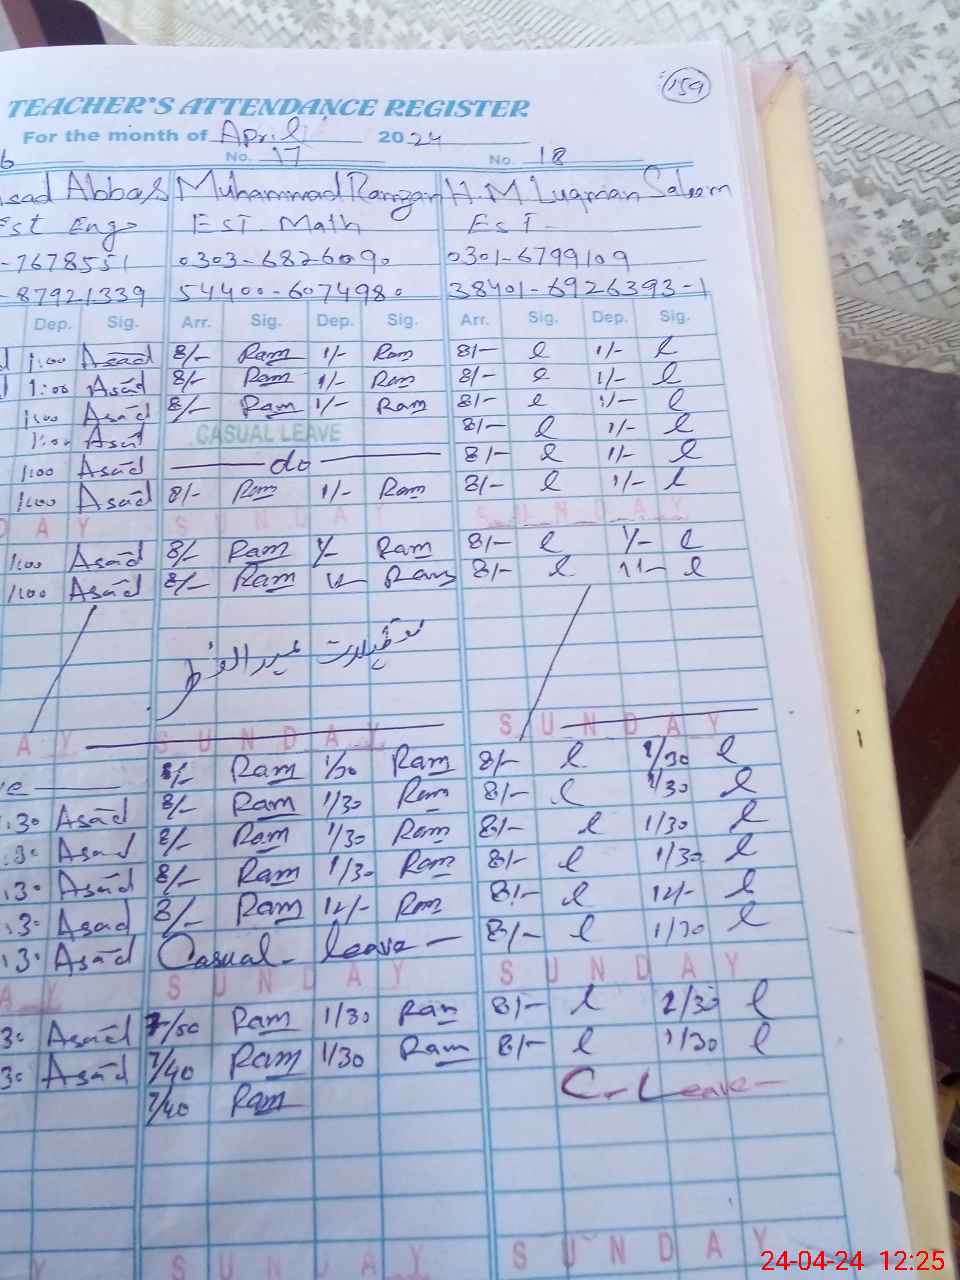 159
TEACHER'S ATTENDANCE REGISTER
For the month of April 2024
No. 17 No. 18
Abbas Muhammad Ramzan H.M Luqman Saleem
Est Eng EST. Math EST-
-7678551 0303-6826090 0301-6799109
-87921339 54400-6074980 38401-6926393-1
Dep. Sig. Arr. Sig. Dep. Sig. Arr. Sig. Dep. Sig.
1:00 Asad 8/- Ram 1/- Ram 8/- l 1/- l
1:00 Asad 8/- Ram 1/- Ram 8/- l 1/- l
1:00 Asad 8/- Ram 1/- Ram 8/- l 1/- l
1:00 Asad CASUAL LEAVE 8/- l 1/- l
1:00 Asad do 8/- l 1/- l
1:00 Asad 8/- Ram 1/- Ram 8/- l 1/- l
DAY SUNDAY SUNDAY
1:00 Asad 8/- Ram 1/- Ram 8/- l 1/- l
1:00 Asad 8/- Ram Ram 8/- l 11- l
تعطیلات عید الفطر
AY SUNDAY SUNDAY
8/- Ram 1/30 Ram 8/- l 1/30 l
:30 Asad 8/- Ram 1/30 Ram 8/- l 1/30 l
:30 Asad 8/- Ram 1/30 Ram 8/- l 1/30 l
:30 Asad 8/- Ram 1/30 Ram 8/- l 1/30 l
:30 Asad 8/- Ram 12/- Ram 8/- l 12/- l
:30 Asad Casual leave 8/- l 1/30 l
AY SUNDAY SUNDAY
30 Asad 7/50 Ram 1/30 Ram 8/- l 2/30 l
30 Asad 7/40 Ram 1/30 Ram 8/- l 1/30 l
7/40 Ram C-Leave-
AY SUNDAY SUNDAY
24-04-24 12:25